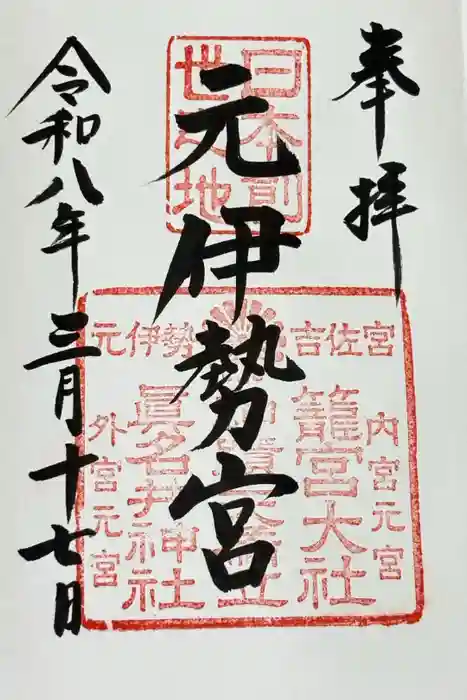 奉拝
元伊勢宮
令和八年三月十七日
日本前
世之地
吉佐宮
元伊勢
内宮元宮
籠宮大社
眞名井神社
外宮元宮